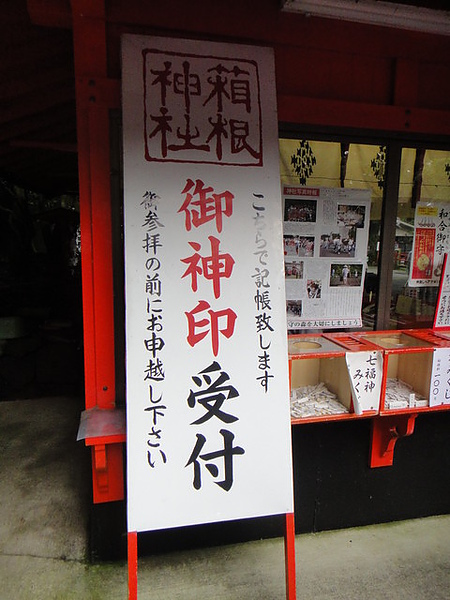 箱根
神社
こちらで記帳致します
御神印受付
御参拝の前にお申越し下さい
和合御守
七福神
みくじ
一〇〇